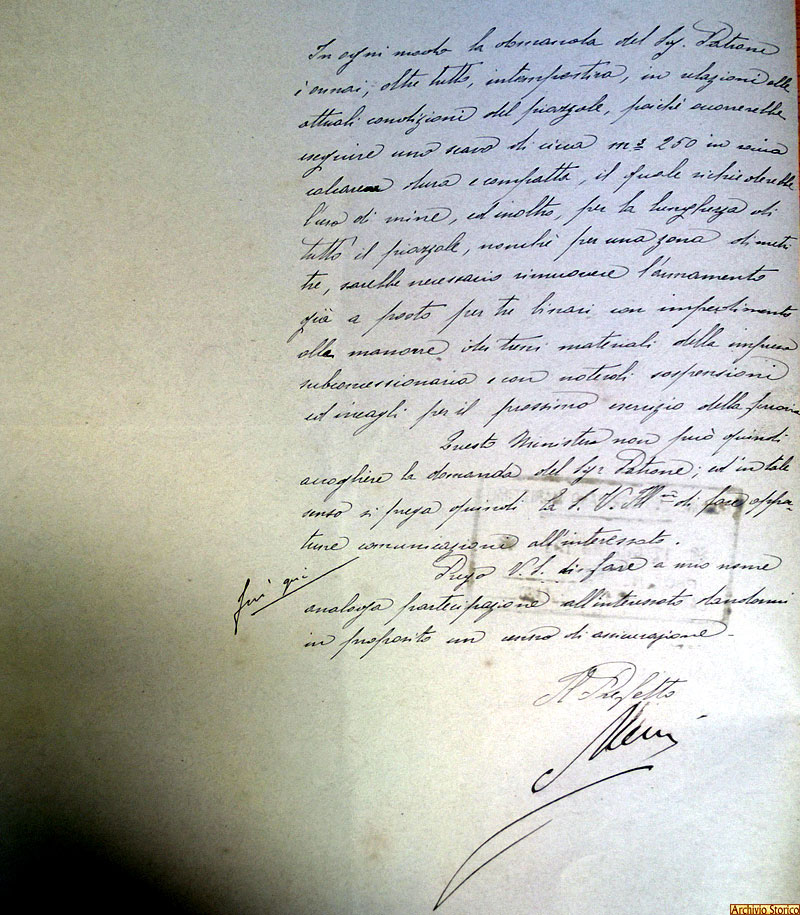 In ogni modo la domanda del Sig. Patrone
è ormai, oltre tutto, intempestiva, in relazione alle
attuali condizioni del piazzale, poichè occorrerebbe
eseguire uno scavo di circa m³ 250 in roccia
calcarea dura e compatta, il quale richiederebbe
l'uso di mine, ed inoltre, per la lunghezza di
tutto il piazzale, nonchè per una zona di metri
tre, sarebbe necessario rimuovere l'armamento
già a posto per tre binari con impedimento
alle manovre dei treni materiali della impresa
subconcessionaria e con notevoli sospensioni
ed incagli per il prossimo esercizio della ferrovia
Questo Ministero non può quindi
accogliere la domanda del Sig. Patrone; ed in tale
senso si prega quindi la S. V. Ill.ma di fare oppor-
tune comunicazioni all'interessato.
Prego V. S. di fare a mio nome
analoga partecipazione all'interessato dandomi
in proposito un cenno di assicurazione.
fin qui
Il Prefetto
Archivio Storico